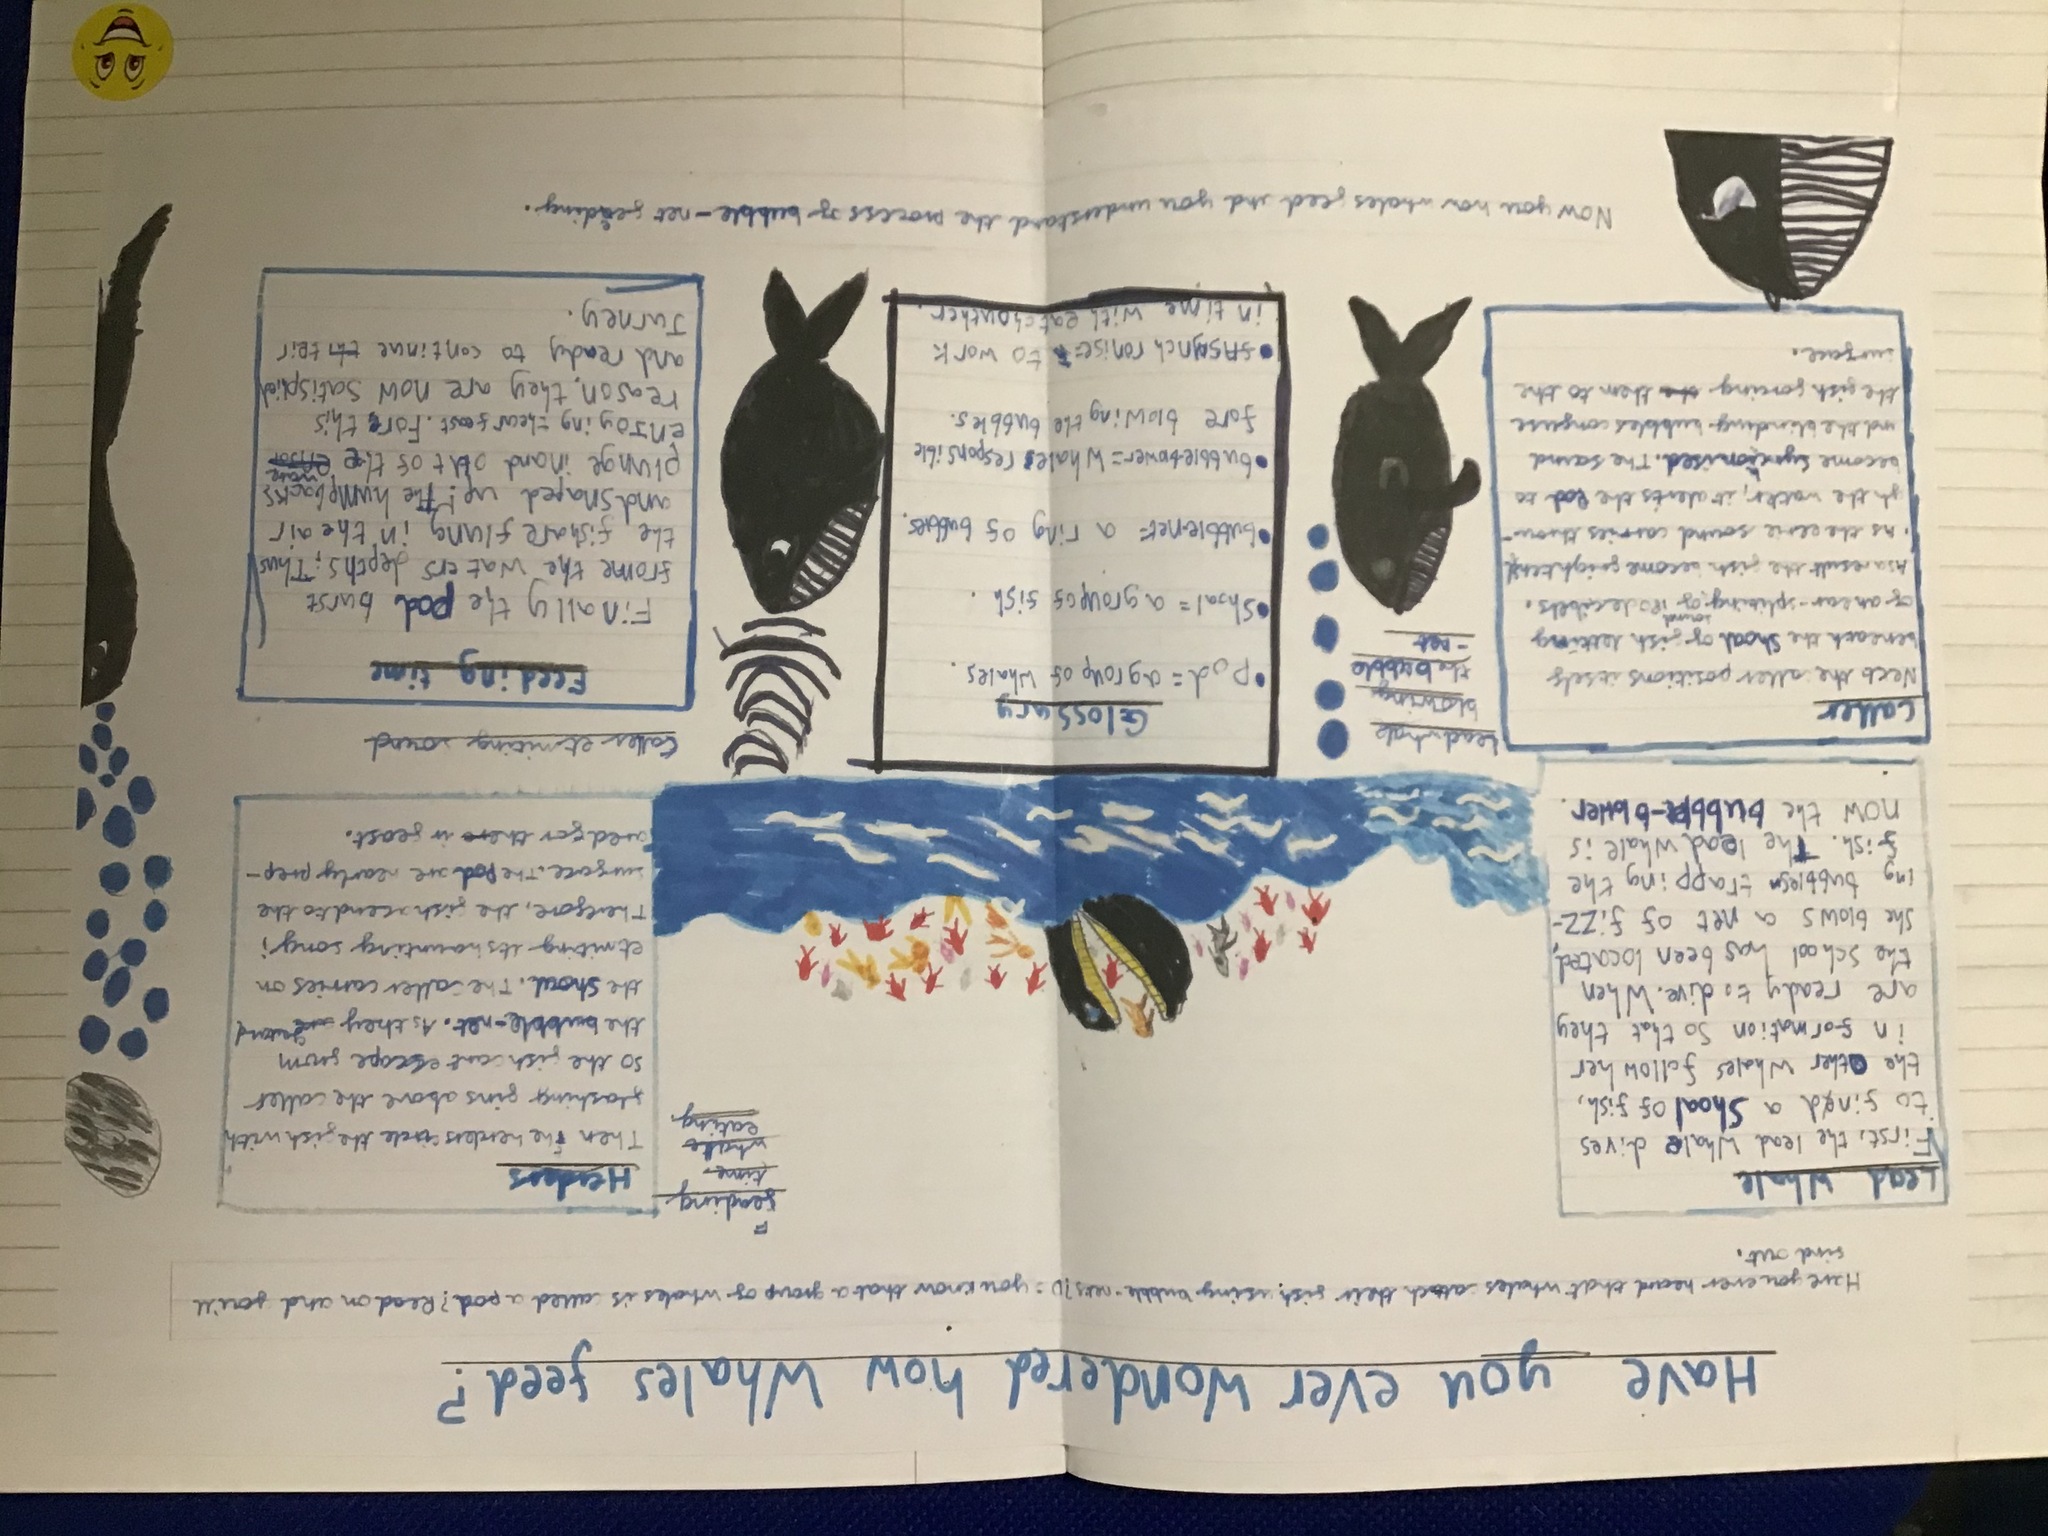 Have you ever wondered how whales feed?
Have you ever heard that whales catch their fish using bubble-nets? D you know that a group of whales is called a pod? Read on and you'll
find out.
Lead Whale
First, the lead whale dives
to find a Shoal of fish,
the other whales follow her
in formation so that they
are ready to dive. When
the school has been located,
she blows a net of fizz-
ing bubbles trapping the
fish. The lead whale is
now the bubble-blower.
Caller
Next the caller positions itself
beneath the Shoal of fish letting
of an ear-spliting sound of 120 decibels.
As a result the fish become frightend
. As the eerie sound carries throu-
gh the water, it alerts the Pod to
become syncronised. The sound
and the blinding bubbles confuse
the fish forcing them to the
surface.
Lead whale
blowing
the bubble
-net
Feading
time
whale
eating
Glossary
• Pod = a group of whales
• Shoal = a group of fish.
• bubblenet = a ring of bubbles.
• bubblebower = Whales responsible
fore blowing the bubbles.
• Asynchronise = to work
in time with eatchouther.
Herders
Then the herders circle the fish with
flashing fins above the caller
so the fish cant escape from
the bubble-net. As they
the Shoal. The caller carries on
etmiting its haunting song;
Therefore, the fish ascend to the
surface. The Pod are nearly prep-
ared for there feast.
Caller etmiting sound
Feeding time
Finally the pod burst
frome the waters depths; Thus
the fish are flung in the air
and snaped up! The humpbacks
plunge in and out of the water
enjoying thear feast. Fore this
reason, they are now satisphied
and ready to continue their
Jurney.
Now you how whales feed and you understand the process of bubble-net feeding.